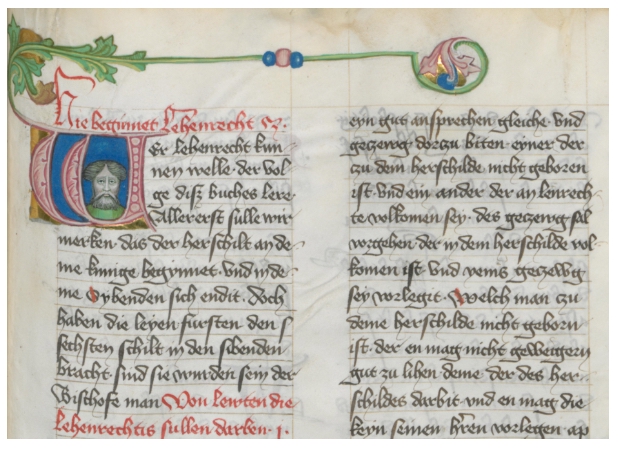 Hie begynnet Lehenrecht etz.
Wer lehenrecht kun¬
nen welle· der vol¬
ge disz buches lere·
Allererst sulle wir
merken· das der herschilt an de¬
me kunige begynnet· vnd in de¬
me sybenden sich endit· Doch
haben die leyen fursten· den s
sechsten schilt in den sibenden
bracht· sind sie wurden sein der
Bischofe man Von lewten die
Lehenrechtis sullen darben· j·
eyn gut ansprechen gleiche· vnd
geczewg dorzu biten· eyner der
zu dem herschilde nicht geboren
ist· vnd ein ander der an lenrech¬
te volkomen sey· des geczewg sal
vorgehen der in dem herschilde vol¬
komen ist· vnd yenis geczewg
sey vorlegit· Welch man zu
deme herschilde nicht geborn
ist· der en mag nicht geweigern
gut zu lihen deme der des her¬
schildes darbit· vnd en mag die
keyn seinen hren vorlegen· ap